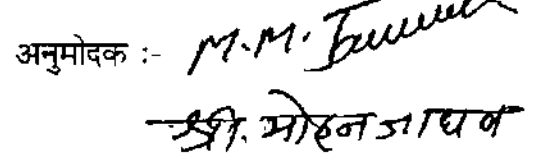 अनुमोदक :- M.M.
श्री. मोहन जाधव